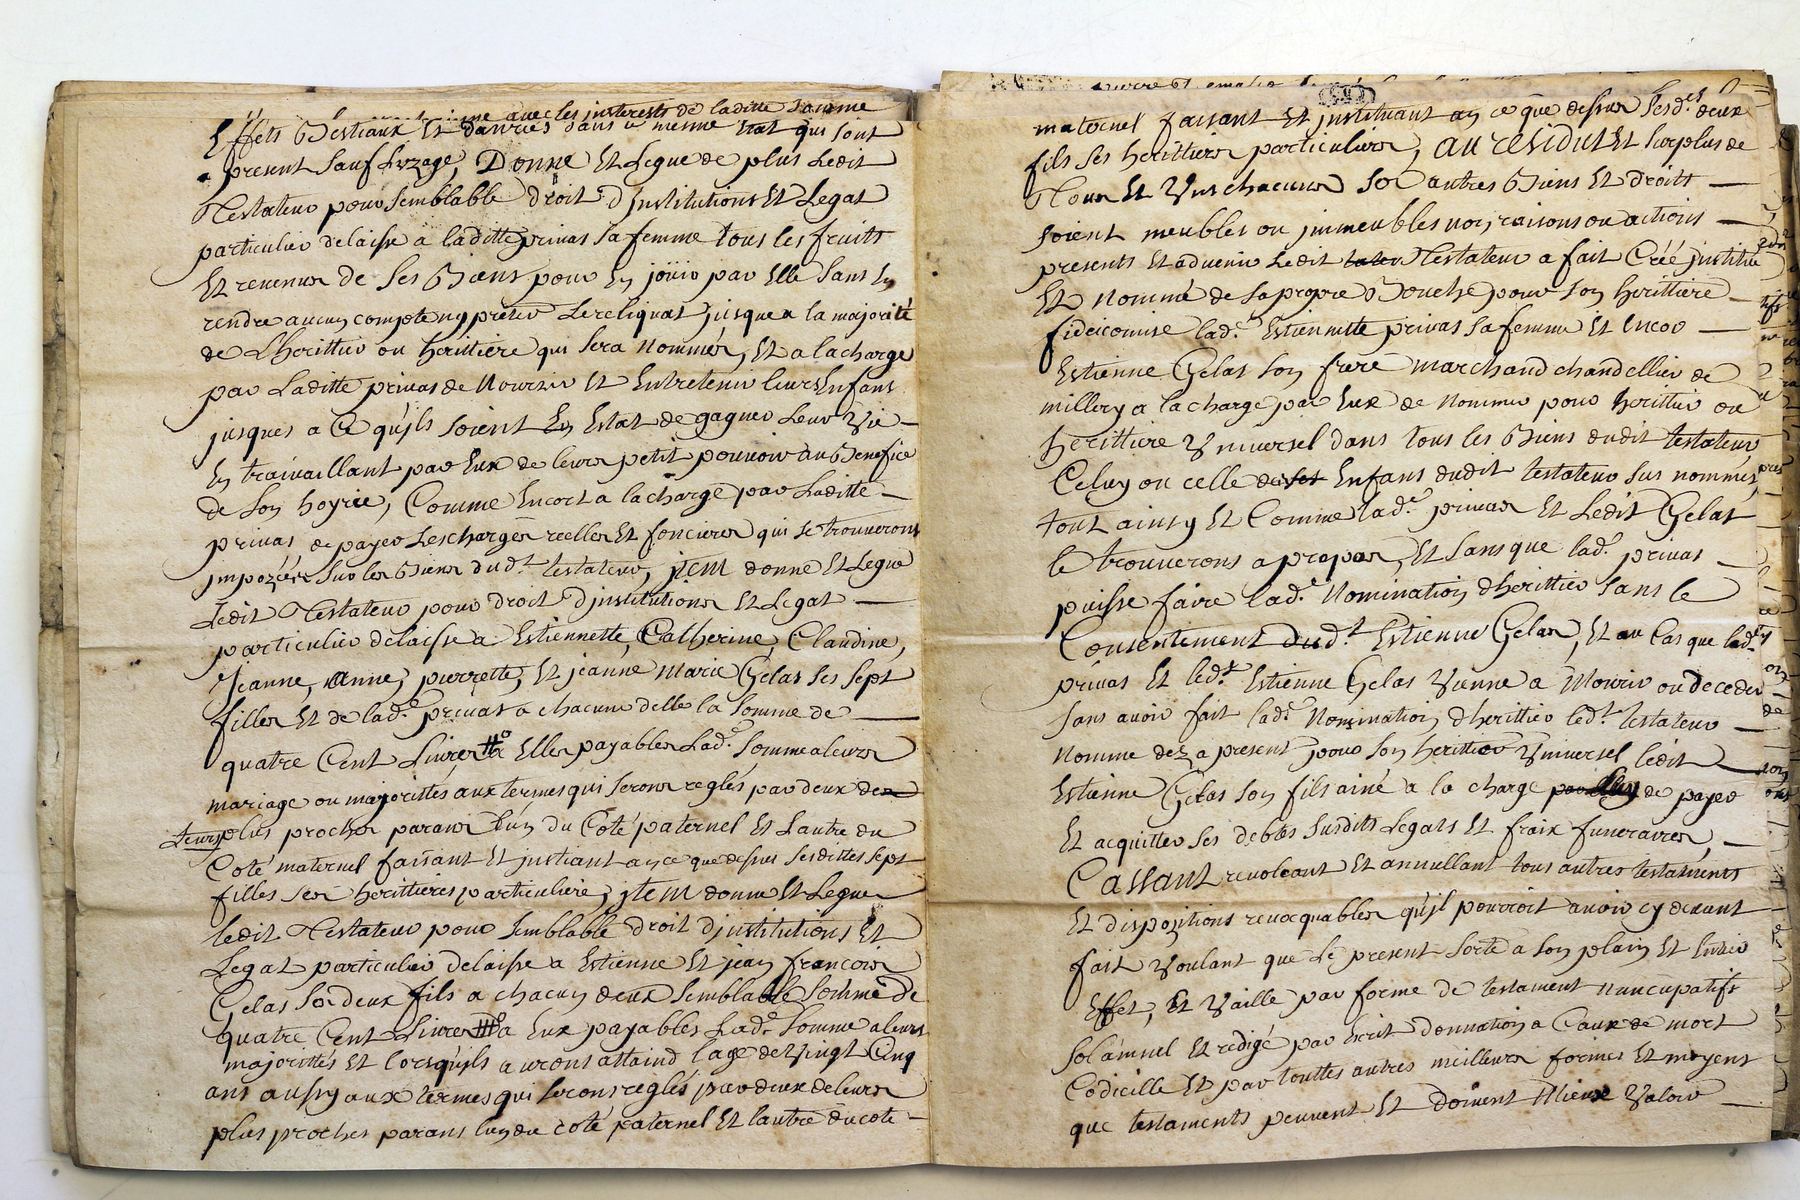 avec les jnterests de laditte somme
Effets Bestiaux Et danrées dans le mesme Etat qui sont
a present sauf Luzage, Donne Et Legue de plus Ledit
Testateur pour semblable droit Djnstitutions Et Legat
particulier delaisse a laditte privas sa femme tous les fruits
Et revenus de ses Biens pour En joüir par Elle sans En
rendre aucun compte ny préter Le reliquat jusque a la majorité
de Lherittier ou herittiere qui sera nommée, Et a la charge
par Laditte privas de Nourrir Et Entretenir leurs Enfans
jusques a Ce quils soient En Estat de gagner Leur Vie
En travaillant par Eux de leurs petit pouvoir au Benefice
de son hoyrie, Comme Encore a la charge par Laditte
privas de payer Les charges reelles Et foncieres qui se trouverons
jmpozées sur les Biens dudt. testateur, jtem donne Et Legue
Ledit Testateur pour droit Djnstitutions Et Legat
particulier delaisse a Estiennette, Catherine, Claudine,
Jeanne, Anne, pierrette, Et jeanne Marie Gelas ses sept
filles Et de lade. privas a chacune delle la somme de
quatre Cent Livres a Elles payables Lade. somme a leurs
mariage ou majorittés aux termes qui serons reglés par deux de
leurs plus proches parans Lun du Coté paternel Et Lautre du
Coté maternel faisant Et jnstiant a ce que dessus sesdittes sept
filles ses herittieres particuliere, jtem donne Et Legue
ledit Testateur pour semblable droit djnstitutions Et
Legat particulier delaisse a Estienne Et jean francois
Gelas ses deux fils a chacun deux semblable somme de
quatre Cent Livres a Eux payables Lade. somme a leurs
majorittés Et lorsquils aurons attaind lage de Vingt Cinq
ans aussy aux termes qui serons reglés par deux de leurs
plus proches parans lun du coté paternel Et lautre du coté
maternel faisant Et jnstituant en ce que dessus sesd.s deux
fils ses herittiers particuliers, au residut Et surplus de
Tous Et Uns chacuns ses autres Biens Et droits
soient meubles ou jmmeubles noms, raisons ou actions
presents Et advenir Ledit Testateur a fait Créé jnstitué
Et Nommé de sa propre Bouche pour son herittiere
fideicomise lade. Estiennette privas sa femme Et Encor
Estienne Gelas son frere marchand chandellier de
millery a la charge par Eux de Nommer pour herittier ou
herittiere Universel dans tous les Biens dudit testateur
Celuy ou celle de ses Enfans dudit testateur sus nommés,
tout ainsy Et Comme lade. privas Et Ledit Gelas
le trouverons a propos, Et sans que lade. privas
puisse faire lade. Nomination dherittier sans le
Consentement dudt. Estienne Gelas, Et au Cas que lade.
privas Et ledt. Estienne Gelas Vienne a Mourir ou deceder
sans avoir fait lade. Nomination dherittier ledt. testateur
Nomme dez a present pour son herittier Universel ledit
Estienne Gelas son fils ainé a la charge de payer
Et acquitter ses debtes susdits Legats Et fraix funeraires,
Cassant revolcant Et annullant tous autres testaments
Et dispozitions revocquables quil pourroit avoir cy devant
fait Voulant que Le present sorte a son plain Et Entier
Effet, Et Vaille par forme de testament nuncupatifs
solamnel Et redigé par Ecrit donnation a Cause de mort
Codicille Et par touttes autres meilleures formes Et moyens
que testaments peuvent Et doivent Mieux Valoir